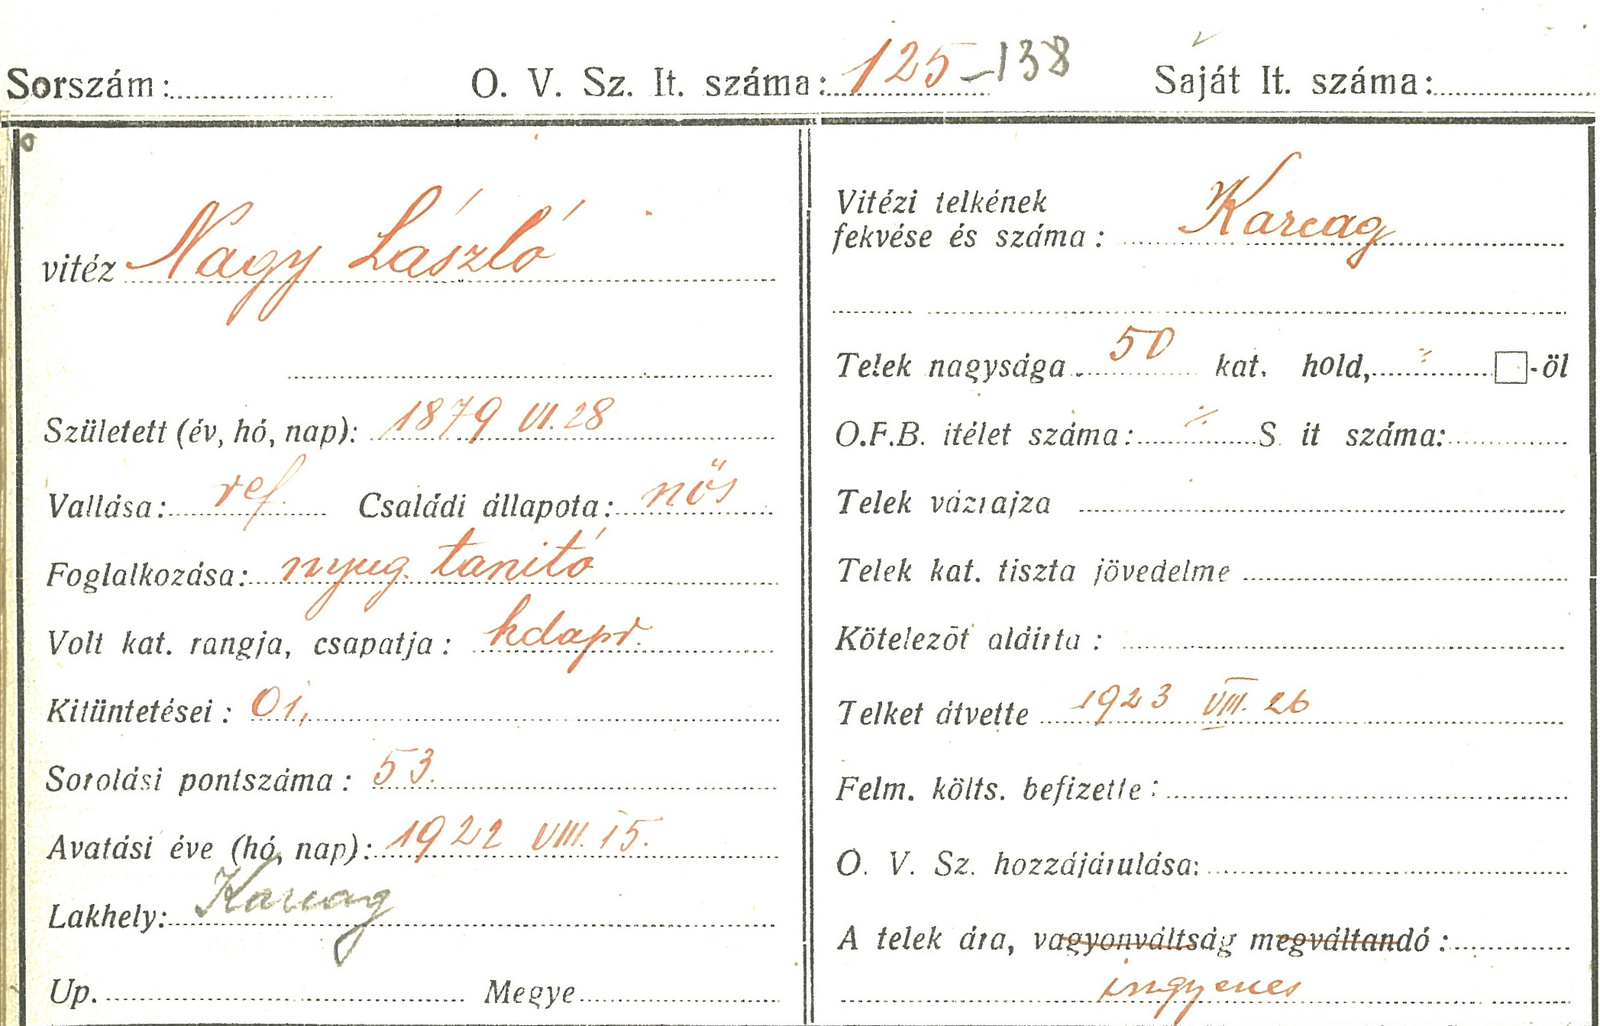 Sorszám: O. V. Sz. It. száma: 125-138 Saját It. száma:
vitéz Nagy László
Született (év, hó, nap): 1879 VI. 28
Vallása: ref. Családi állapota: nős
Foglalkozása: nyug. tanitó
Volt kat. rangja, csapatja: hdapr.
Kitüntetései: Oi,
Sorolási pontszáma: 53.
Avatási éve (hó, nap): 1922 VIII. 15.
Lakhely: Karcag
Up. Megye
Vitézi telkének
fekvése és száma: Karcag
Telek nagysága 50 kat. hold, □-öl
O.F.B. itélet száma: S it száma:
Telek vázrajza
Telek kat. tiszta jövedelme
Kötelezőt aláirta:
Telket átvette 1923 VIII. 26
Felm. költs. befizette:
O. V. Sz. hozzájárulása:
A telek ára, vagyonváltság megváltandó:
ingyenes